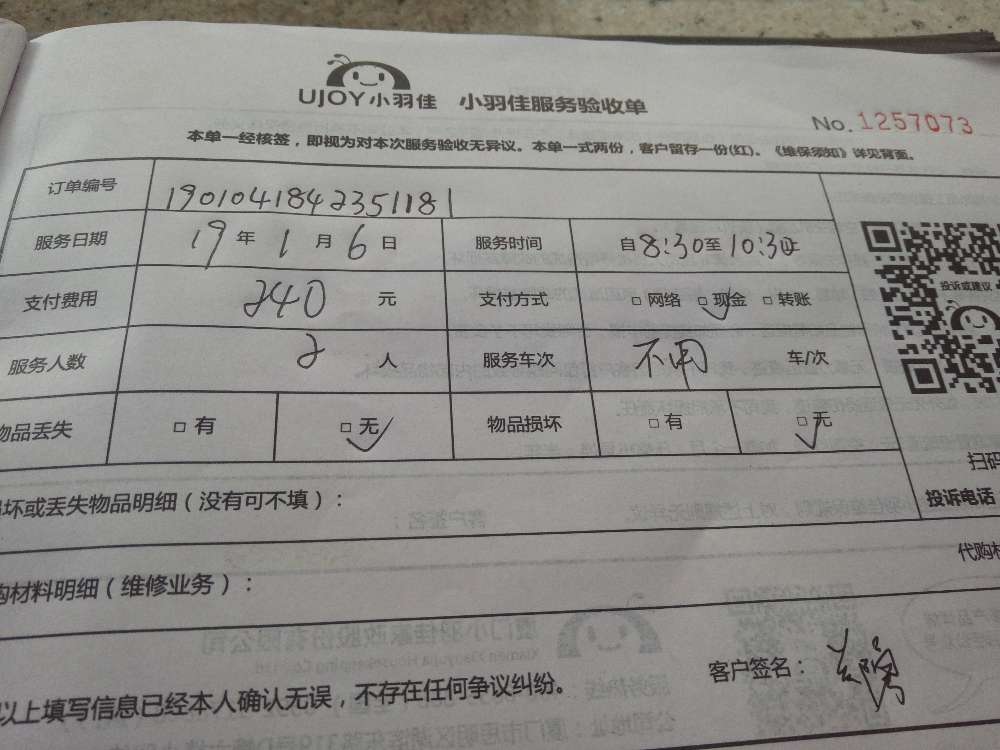 UJOY小羽佳 小羽佳服务验收单
No. 1257073
本单一经核签，即视为对本次服务验收无异议。本单一式两份，客户留存一份(红)。《维保须知》详见背面。
订单编号 1901041842351181
服务日期 19 年 1 月 6 日 服务时间 自8:30至10:30止
支付费用 240 元 支付方式 □ 网络 □ 现金 □ 转账
投诉或建议
服务人数 2 人 服务车次 不用 车/次
物品丢失 □ 有 □ 无 物品损坏 □ 有 □ 无
扫码
坏或丢失物品明细（没有可不填）：
投诉电话
代购材
购材料明细（维修业务）：
客户签名：
以上填写信息已经本人确认无误，不存在任何争议纠纷。